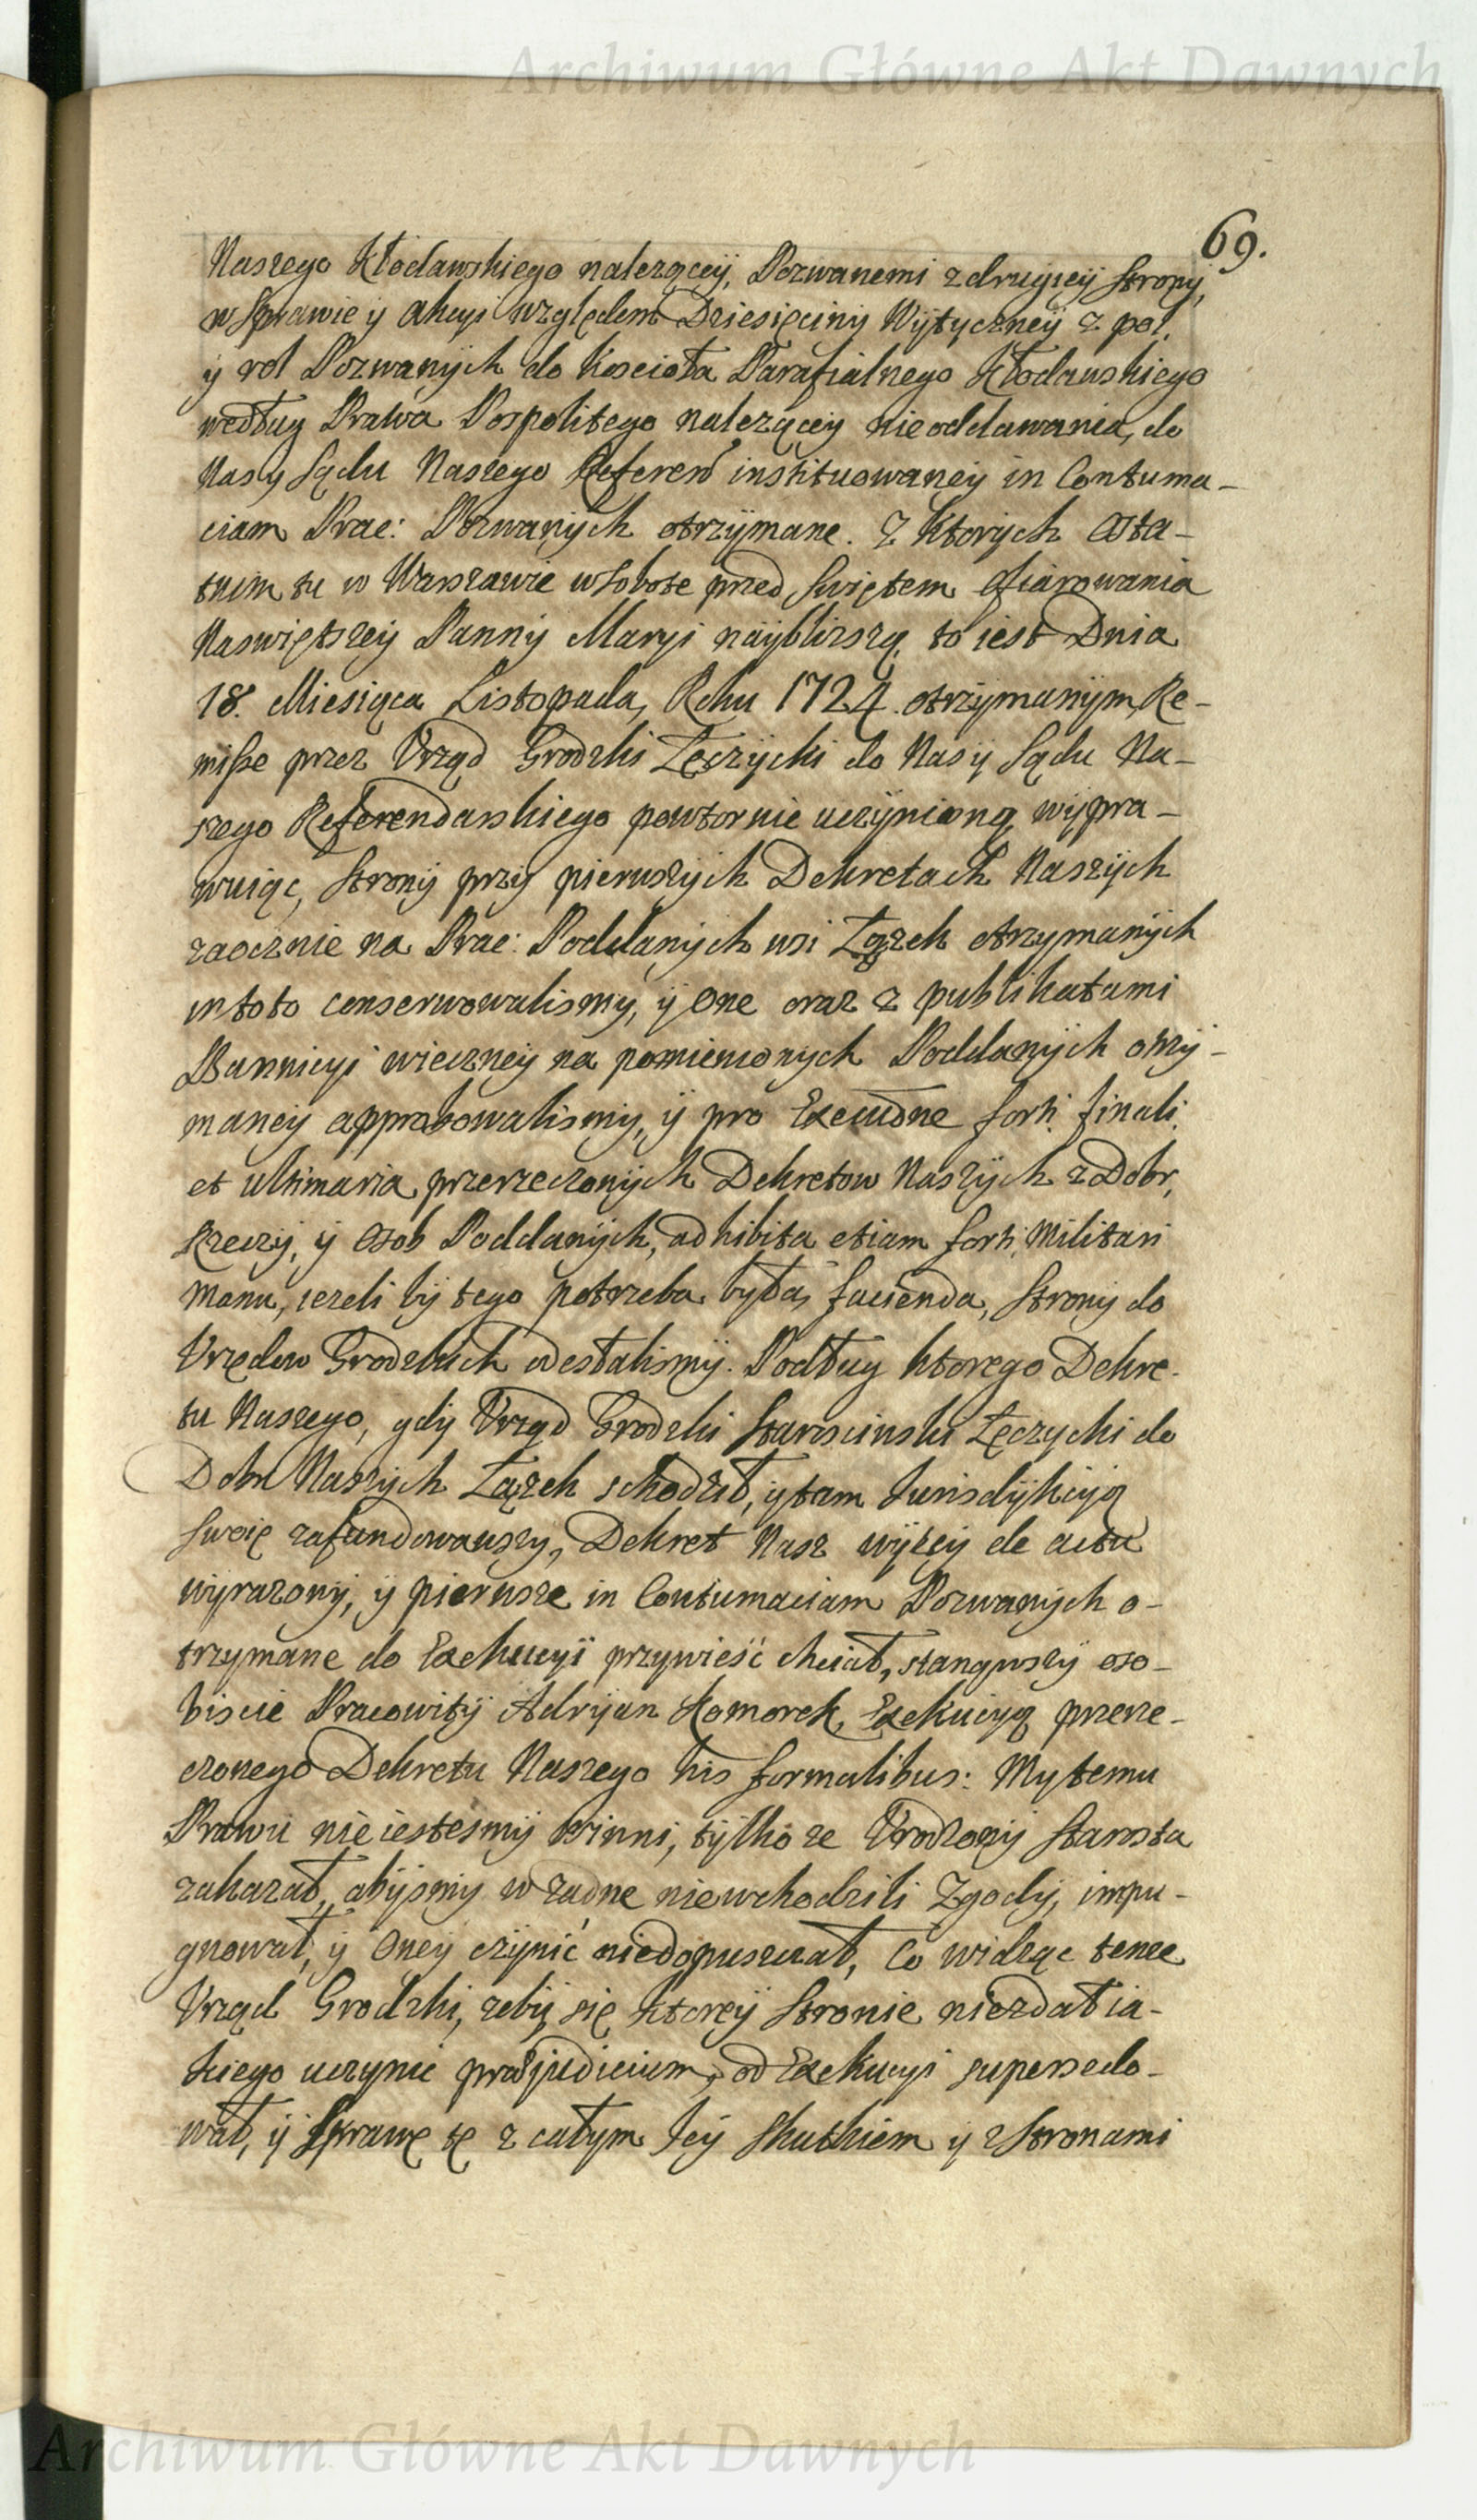 Archiwum Główne Akt Dawnych
69.
Naszego Kłodawskiego nalezącey, Pozwanemi z drugiey Strony,
w Sprawie y Akcyi względem Dziesięciny Wytyczney z pol,
y rol Pozwanych do Koscioła Parafialnego Kłodawskiego
według Prawa Pospolitego nalezącey nieoddawania, do
Nas y Sądu Naszego Referen instituowaney in Contuma-
ciam Prac: Pozwanych otrzymane. Z ktorych Osta-
tnim tu w Warszawie w Sobote przed Swiętem Ofiarowania
Naswiętszey Panny Maryi nayblizszą, to iest Dnia
18. Miesiąca Listopada, Roku 1724. otrzymanym, Re-
misse przez Vrząd Grodzki Łęczycki do Nas y Sądu Na-
szego Referendarskiego powtornie uczynioną wypra-
wuiąc, Strony przy pierwszych Dekretach Naszych
zaocznie na Prac: Poddanych wsi Łązek otrzymanych
in toto conserwowalismy, y One oraz z publikatami
Bannicyi wieczney na pomienionych Poddanych otrzy-
maney approbowalismy, y pro Execuõne forti, finali,
et ultimaria przerzeczonych Dekretow Naszych z Dobr,
Rzeczy, y Osob Poddanych, adhibita etiam forti Militari
Manu, iezeli by tego potrzeba była, facienda, Strony do
Vrzędow Grodzkich odesłalismy. Podług ktorego Dekre-
tu Naszego, gdy Vrząd Grodzki Starosciński Łęczycki do
Dobr Naszych Łązek schodził, y tam Jurisdykcyą
Swoię zafundowawszy, Dekret Nasz wyzey de actu
wyrazony, y pierwsze in Contumaciam Pozwanych o-
trzymane do Exekucyi przywieść chciał, stanąwszy oso-
biscie Pracowity Adryan Komorek, Exekucyą przerze-
czonego Dekretu Naszego his formalibus: My temu
Prawu nie iestesmy winni, tylko ze Vrodzony Starosta
zakazał, abysmy w zadne niewchodzili Zgody, impu-
gnował, y Oney czynić niedopuszczał, Co widząc tenze
Vrząd Grodzki, zeby się ktorey Stronie niezdał ia-
kiego uczynic præjudicium, od Exekucyi supersedo-
wał, y Sprawę tę z całym Jey Skutkiem y z Stronami
Archiwum Główne Akt Dawnych